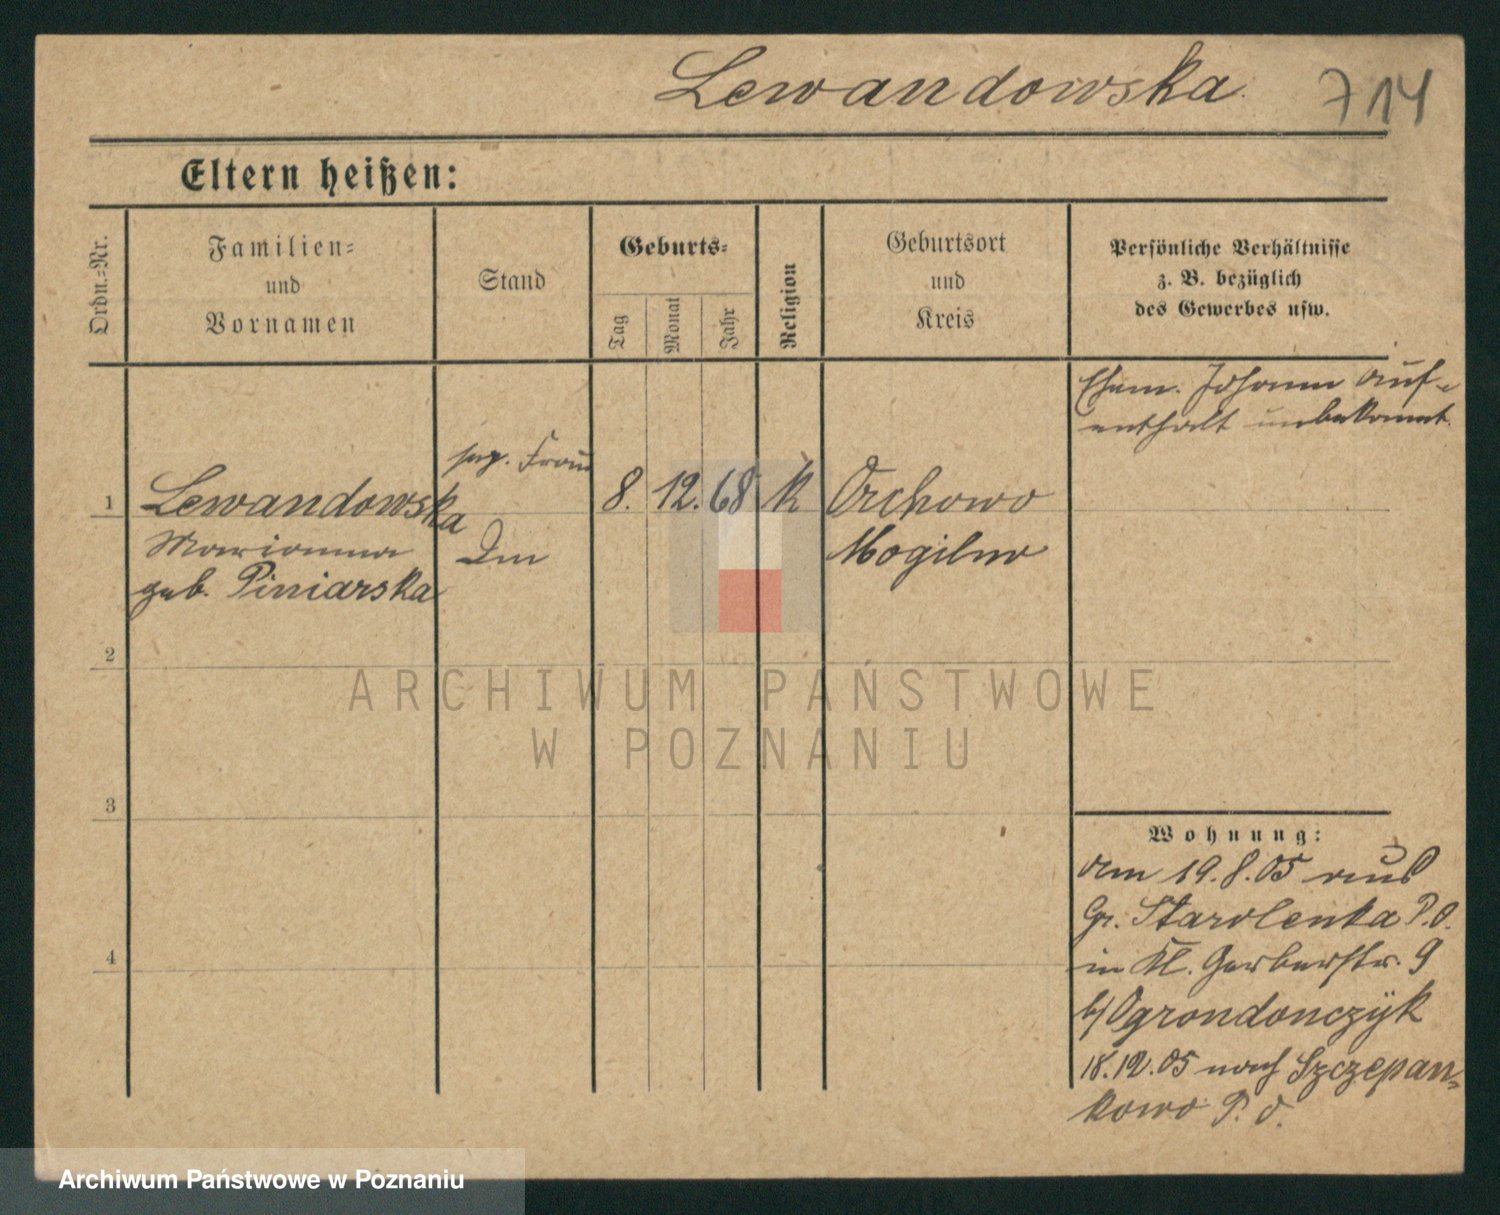 Lewandowska
714
Eltern heißen:
Ordn.=Nr.
Familien=
und
Vornamen
Stand
Geburts=
Tag
Monat
Jahr
Religion
Geburtsort
und
Kreis
Persönliche Verhältnisse
z. B. bezüglich
des Gewerbes usw.
Ehem. Johann Auf-
enthalt unbekannt
1
Lewandowska
Marianna
geb. Piniarska
Frau
8. 12. 68
k
Orchowo
Mogilno
2
3
4
Wohnung:
Am 19.8.05 aus
Gr. Starolenka P.O.
in Kl. Gerberstr. 9
b/ Ogrondonczyk
18.12.05 nach Szczepan=
kowo P. O.
ARCHIWUM PAŃSTWOWE
W POZNANIU
Archiwum Państwowe w Poznaniu